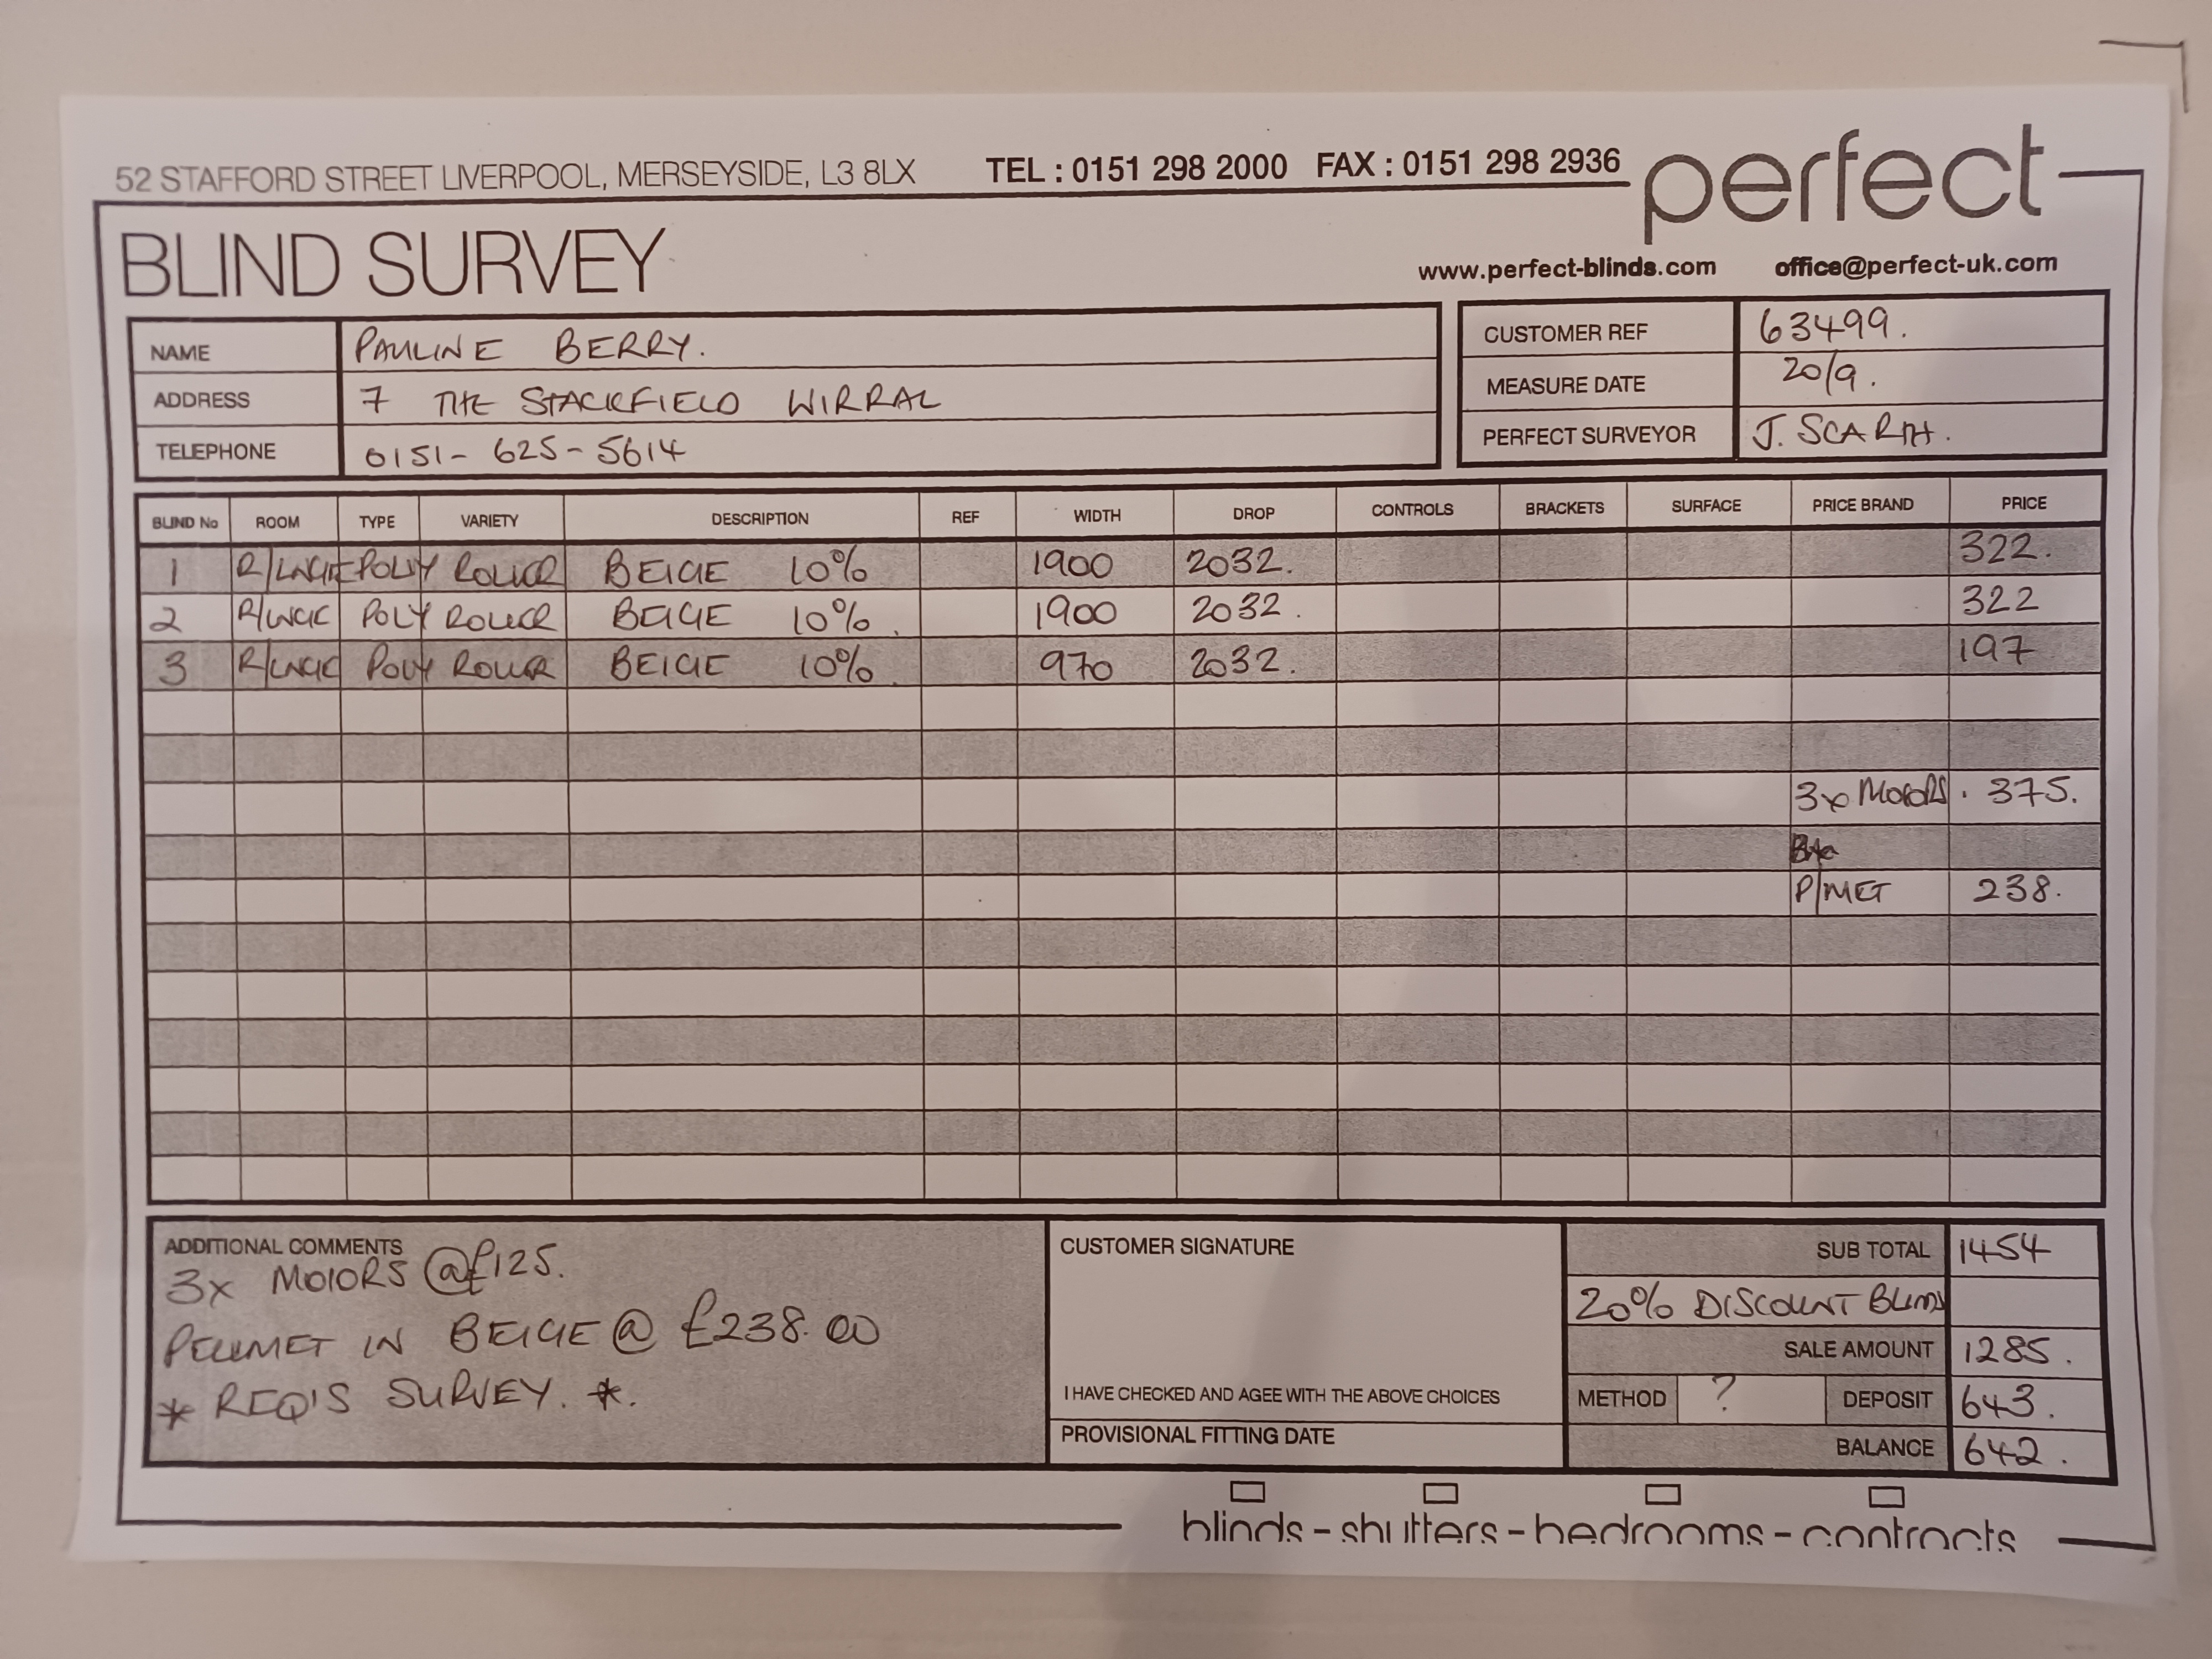 52 STAFFORD STREET LIVERPOOL, MERSEYSIDE, L3 8LX TEL : 0151 298 2000 FAX : 0151 298 2936 perfect
BLIND SURVEY
www.perfect-blinds.com office@perfect-uk.com
NAME PAULINE BERRY.
ADDRESS 7 THE STACKFIELD WIRRAL
TELEPHONE 0151-625-5614
CUSTOMER REF 63499.
MEASURE DATE 20/9.
PERFECT SURVEYOR J. SCARTH.
BLIND No ROOM TYPE VARIETY DESCRIPTION REF WIDTH DROP CONTROLS BRACKETS SURFACE PRICE BRAND PRICE
1 R/LNGE POLY ROLLER BEIGE 10% 1900 2032. 322.
2 R/LNGE POLY ROLLER BEIGE 10% 1900 2032. 322
3 R/LNGE POLY ROLLER BEIGE 10% 970 2032. 197
3x MOTORS. 375.
P/MET 238.
ADDITIONAL COMMENTS
3x MOTORS @£125.
PELLMET IN BEIGE @ £238.00
* REQ'S SURVEY. *.
CUSTOMER SIGNATURE
I HAVE CHECKED AND AGEE WITH THE ABOVE CHOICES
PROVISIONAL FITTING DATE
SUB TOTAL 1454
20% DISCOUNT BLINDS
SALE AMOUNT 1285.
METHOD ? DEPOSIT 643.
BALANCE 642.
blinds - shutters - bedrooms - contracts